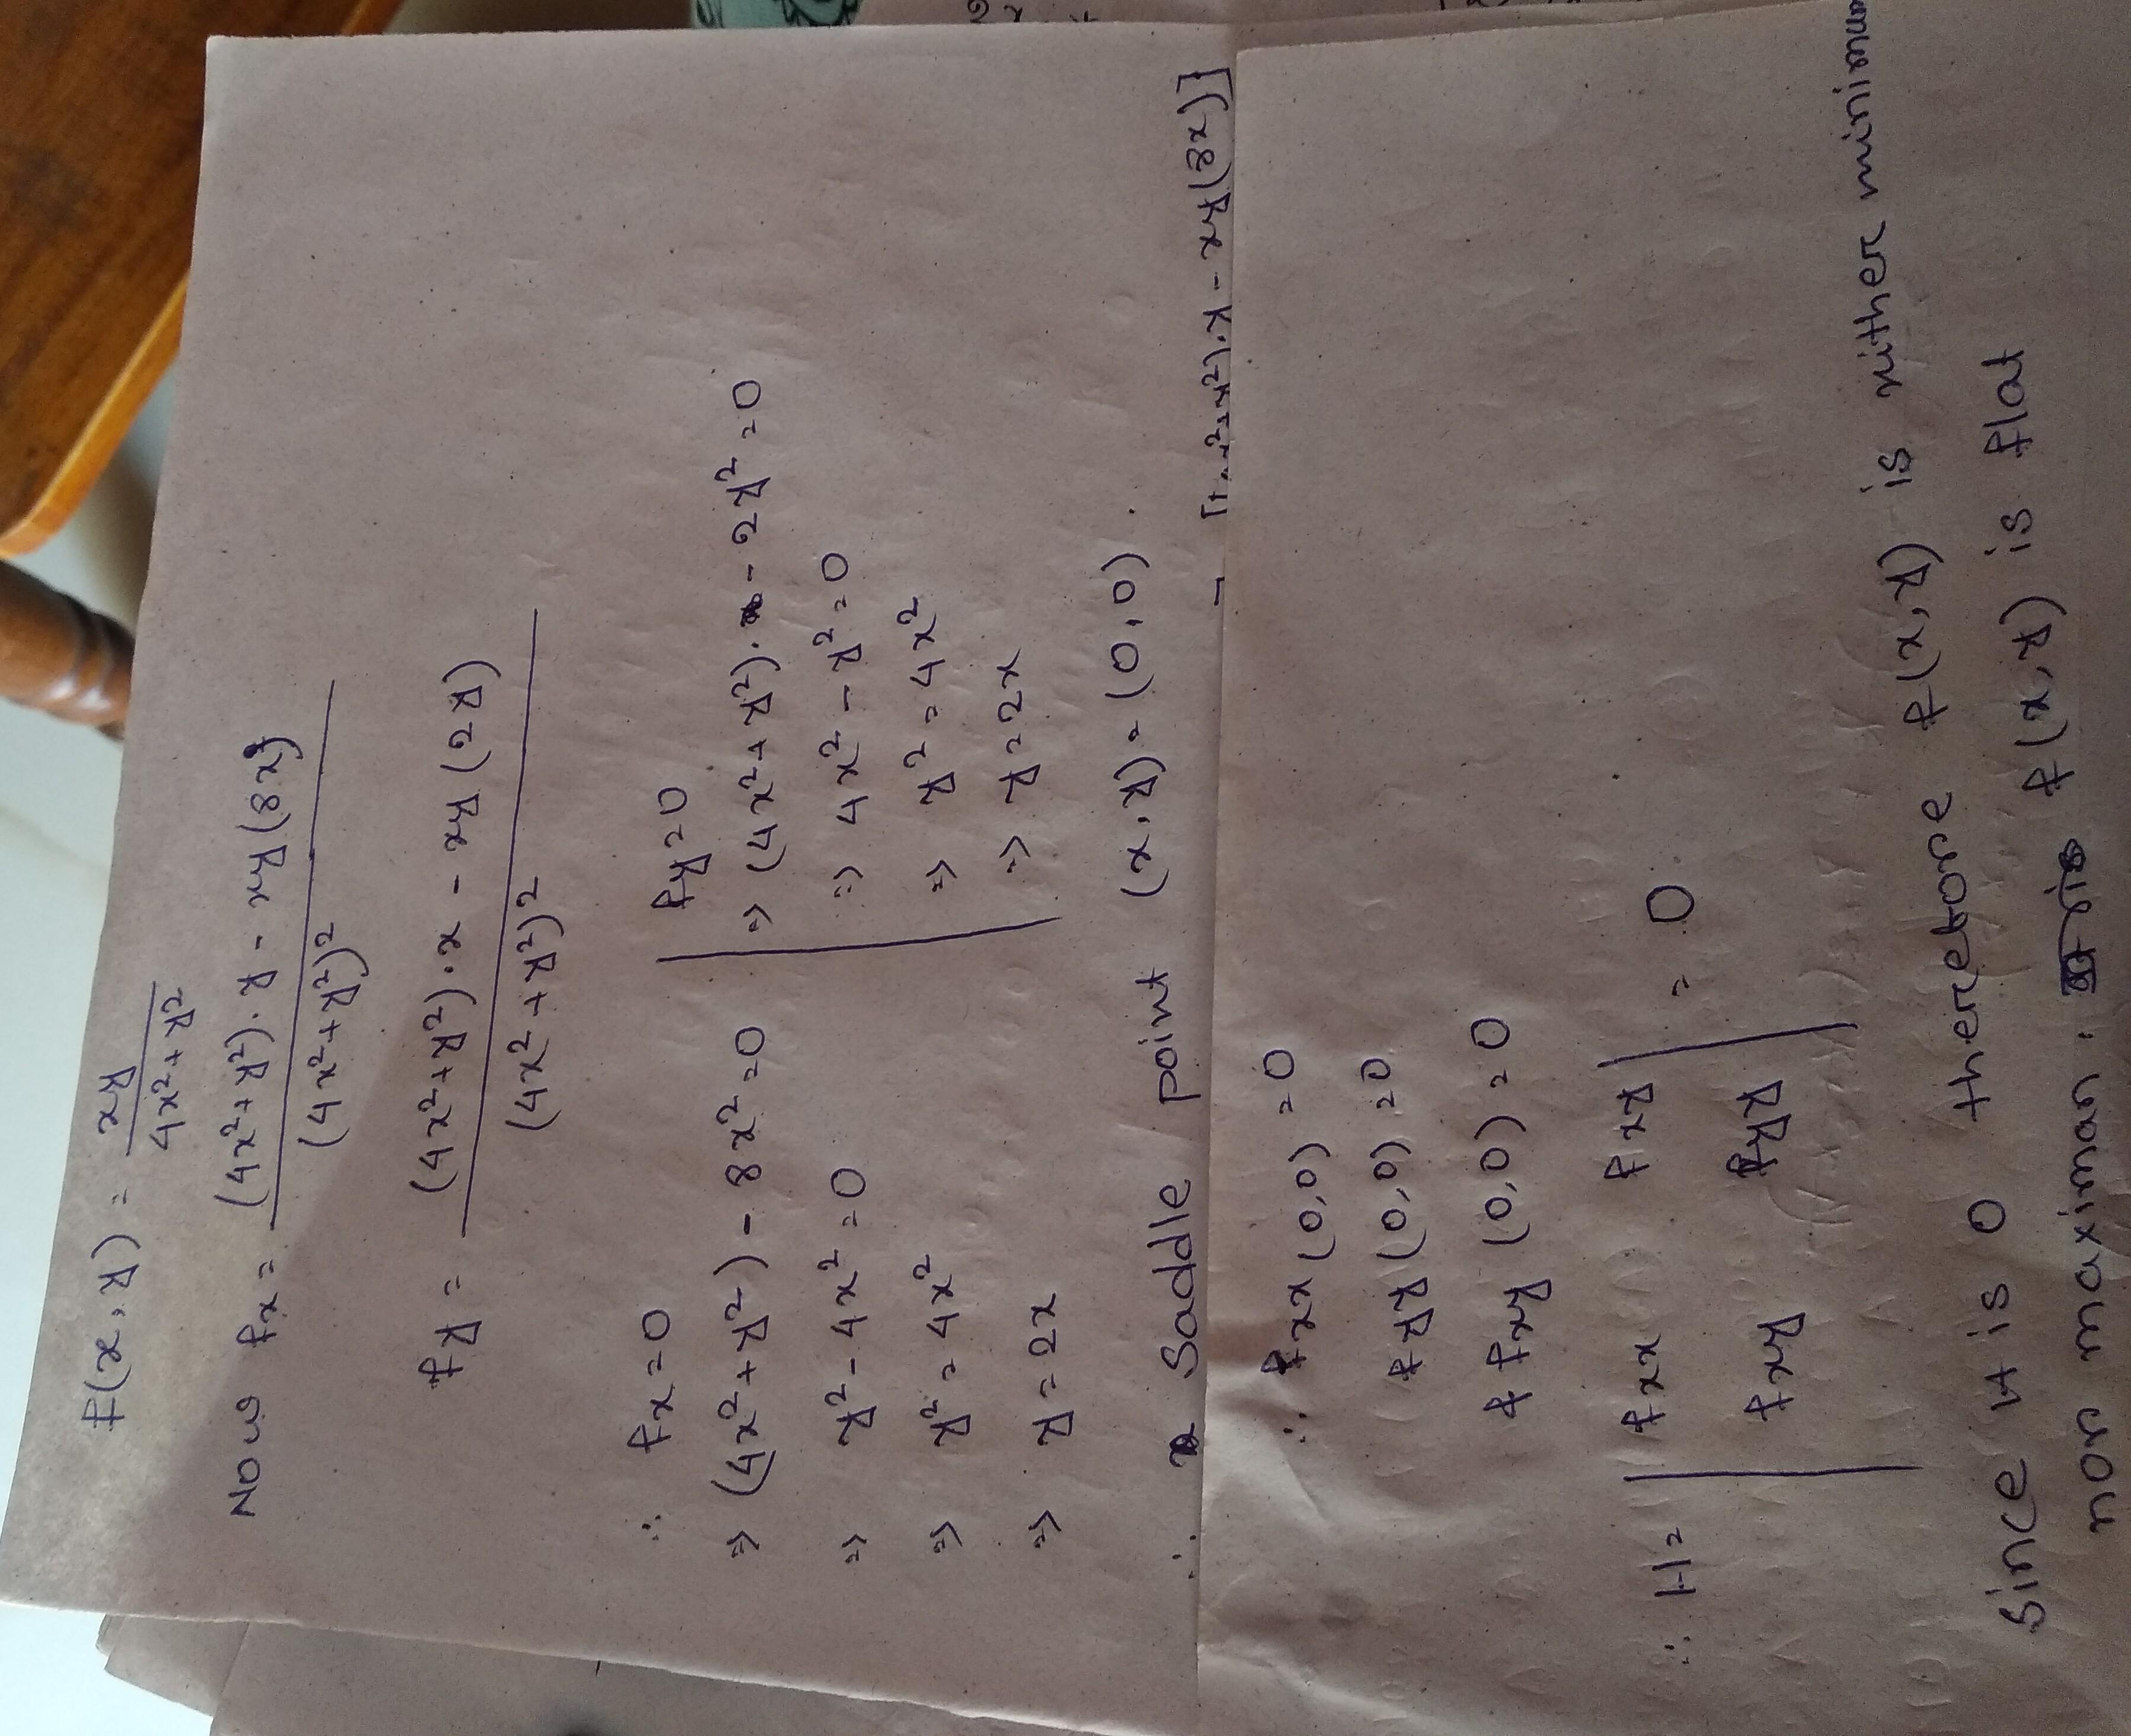 f(x,y) = xy / 4x²+y²
Now fx = (4x²+y²).y - xy(8x) / (4x²+y²)²
fy = (4x²+y²).x - xy(2y) / (4x²+y²)²
∴ fx=0
⇒ (4x²+y²) - 8x²=0
⇒ y²-4x²=0
⇒ y²=4x²
⇒ y=2x
fy=0
⇒ (4x²+y²). - 2y²=0
⇒ 4x²-y²=0
⇒ y²=4x²
⇒ y=2x
∴ Saddle point (x,y)=(0,0).
.y - xy(8x)]
∴ fxx(0,0) =0
fyy(0,0) =0
& fxy(0,0) =0
∴ H= | fxx fxy | = 0
fxy fyy
Since it is 0 therefore f(x,y) is nither minimum
nor maximan. f(x,y) is flat